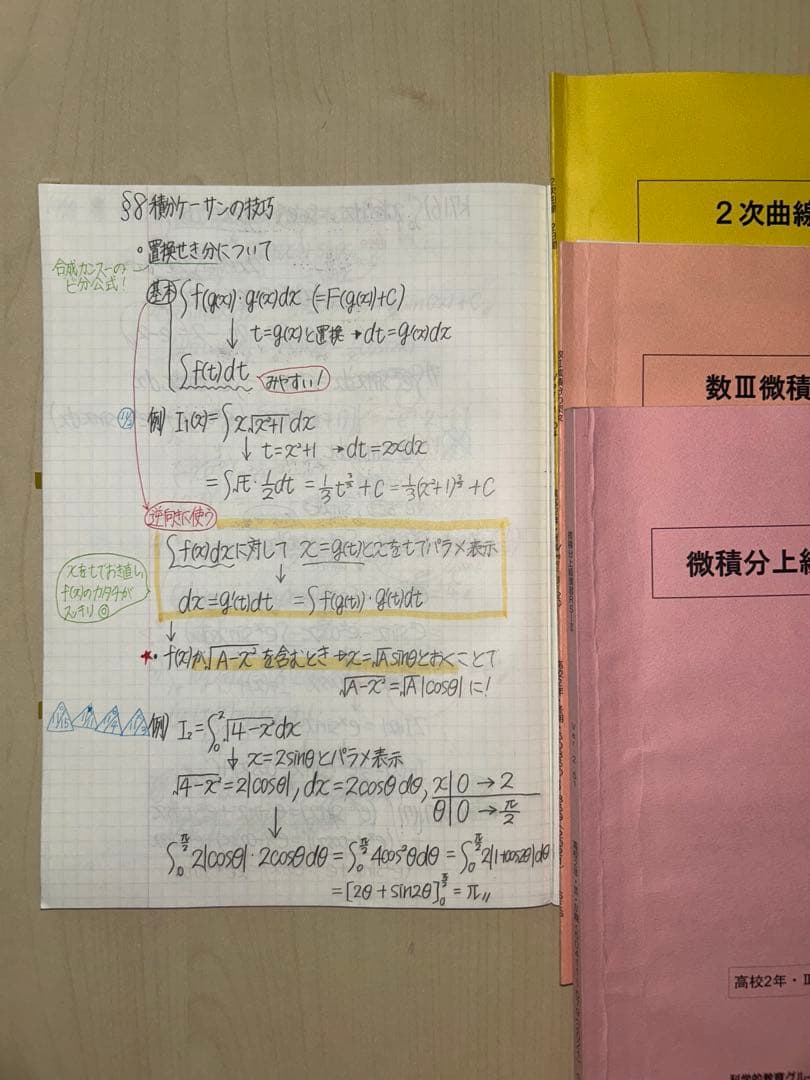 §8 積分ケーサンの技巧
・置換せき分について
合成カンスーの
ビ分公式!
基本 ∫f(g(x))・g'(x)dx (=F(g(x))+C)
↓ t=g(x)と置換 → dt=g'(x)dx
∫f(t)dt みやすい!
例) I₁(x)=∫x√(x²+1) dx
↓ t=x²+1 →dt=2xdx
=∫√t・1/2 dt = 1/3 t^(3/2) + C = 1/3 (x²+1)^(3/2) + C
逆向きに使う
∫f(x)dxに対して x=g(t)とxをtでパラメ表示
↓
dx=g'(t)dt =∫f(g(t))・g'(t)dt
xをtでおき直し、
f(x)のカタチが
スッキリ◎
↓
★・f(x)が√(A-x²)を含むとき→x=√A sinθとおくことで
√(A-x²)=√A|cosθ|に!
例) I₂=∫₀²√(4-x²)dx
↓ x=2sinθとパラメ表示
√(4-x²)=2|cosθ|, dx=2cosθdθ, x|0→2
θ|0→π/2
↓
∫₀^(π/2) 2|cosθ|・2cosθdθ=∫₀^(π/2) 4cos²θdθ=∫₀^(π/2) 2(1+cos2θ)dθ
=[2θ+sin2θ]₀^(π/2)=π〃
2次曲線
数Ⅲ微積
微積分上級
高校2年・Ⅱ
科学的教育グルー